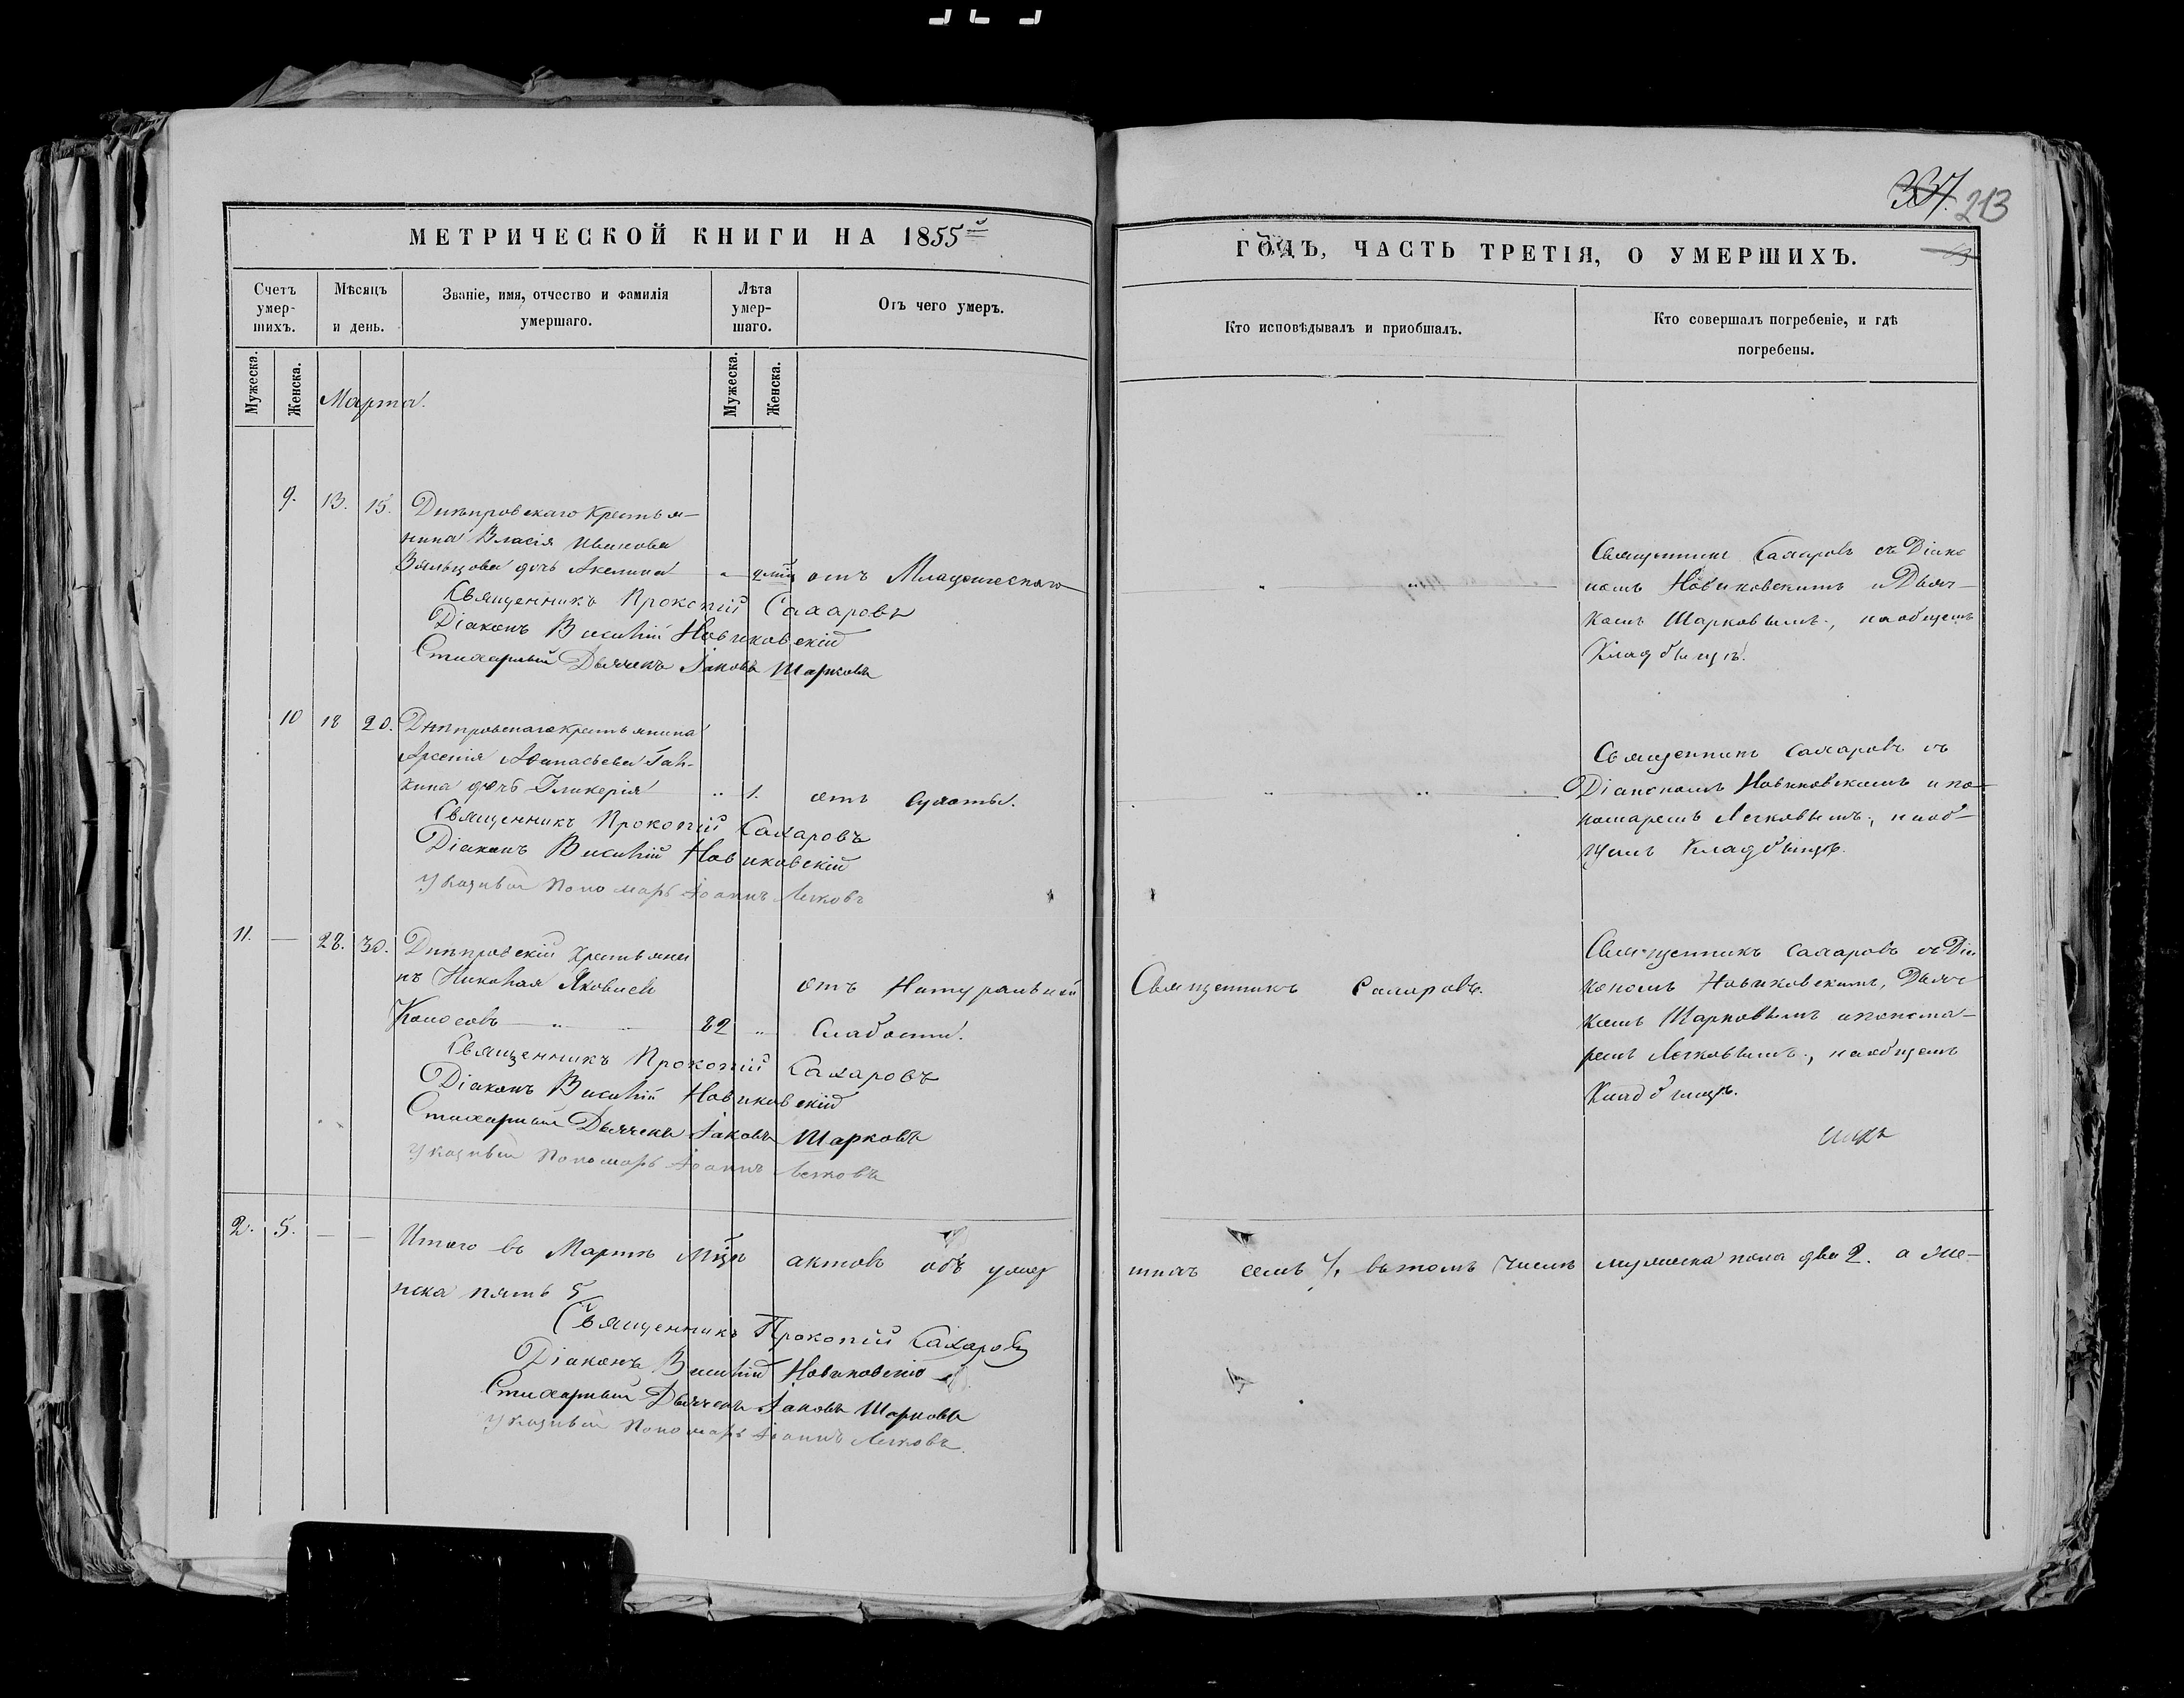 337. 213
МЕТРИЧЕСКОЙ КНИГИ НА 1855й
ГОДЪ, ЧАСТЬ ТРЕТІЯ, О УМЕРШИХЪ.
Счетъ умер-шихъ.
Мѣсяцъ и день.
Званіе, имя, отчество и фамилія умершаго.
Лѣта умер-шаго.
Отъ чего умеръ.
Кто исповѣдывалъ и пріобщалъ.
Кто совершалъ погребеніе, и гдѣ погребены.
Мужеска. Женска.
Марта.
Мужеска. Женска.
9. 13. 15. Днѣпровскаго крестья-
нина Власія Иванова
дочь Акелина отъ Младенческаго
Священникъ Прокопій Сахаровъ
Діаконъ Василій Новиковскій
Стихарный Дьячекъ Іаковъ Шарковъ
Священникъ Сахаровъ съ Діако
номъ Новиковскимъ и Дьяч-
комъ Шарковымъ, на общемъ
Кладбищѣ.
10 18 20. Днѣпровскаго крестьянина
Арсенія Афанасьева Гал-
кина дочь Гликерія 1. отъ сухоты.
Священникъ Прокопій Сахаровъ
Діаконъ Василій Новиковскій
Указный Пономарь Іоаннъ Легковъ
Священникъ Сахаровъ съ
Діакономъ Новиковскимъ и по-
номаремъ Легковымъ, на об-
щемъ Кладбищѣ.
11. — 28. 30. Днѣпровскій крестьяни
нъ Николая Яковлев отъ Натуральной
Колосовъ 22 Слабости.
Священникъ Прокопій Сахаровъ
Діаконъ Василій Новиковскій
Стихарный Дьячекъ Іаковъ Шарковъ
Указный Пономарь Іоаннъ Легковъ
Священникъ Сахаровъ.
Священникъ Сахаровъ съ Діа
кономъ Новиковскимъ, Дьяч
комъ Шарковымъ и понома-
ремъ Легковымъ, на общемъ
Кладбищѣ.
2. 5. — — Итого въ Мартѣ мцѣ актовъ объ умер
шихъ семь 7, въ томъ числѣ мужеска пола два 2. а же-
нска пять 5
Священникъ Прокопій Сахаровъ
Діаконъ Василій Новиковскій
Стихарный Дьячекъ Іаковъ Шарковъ
Указный Пономарь Іоаннъ Легковъ.